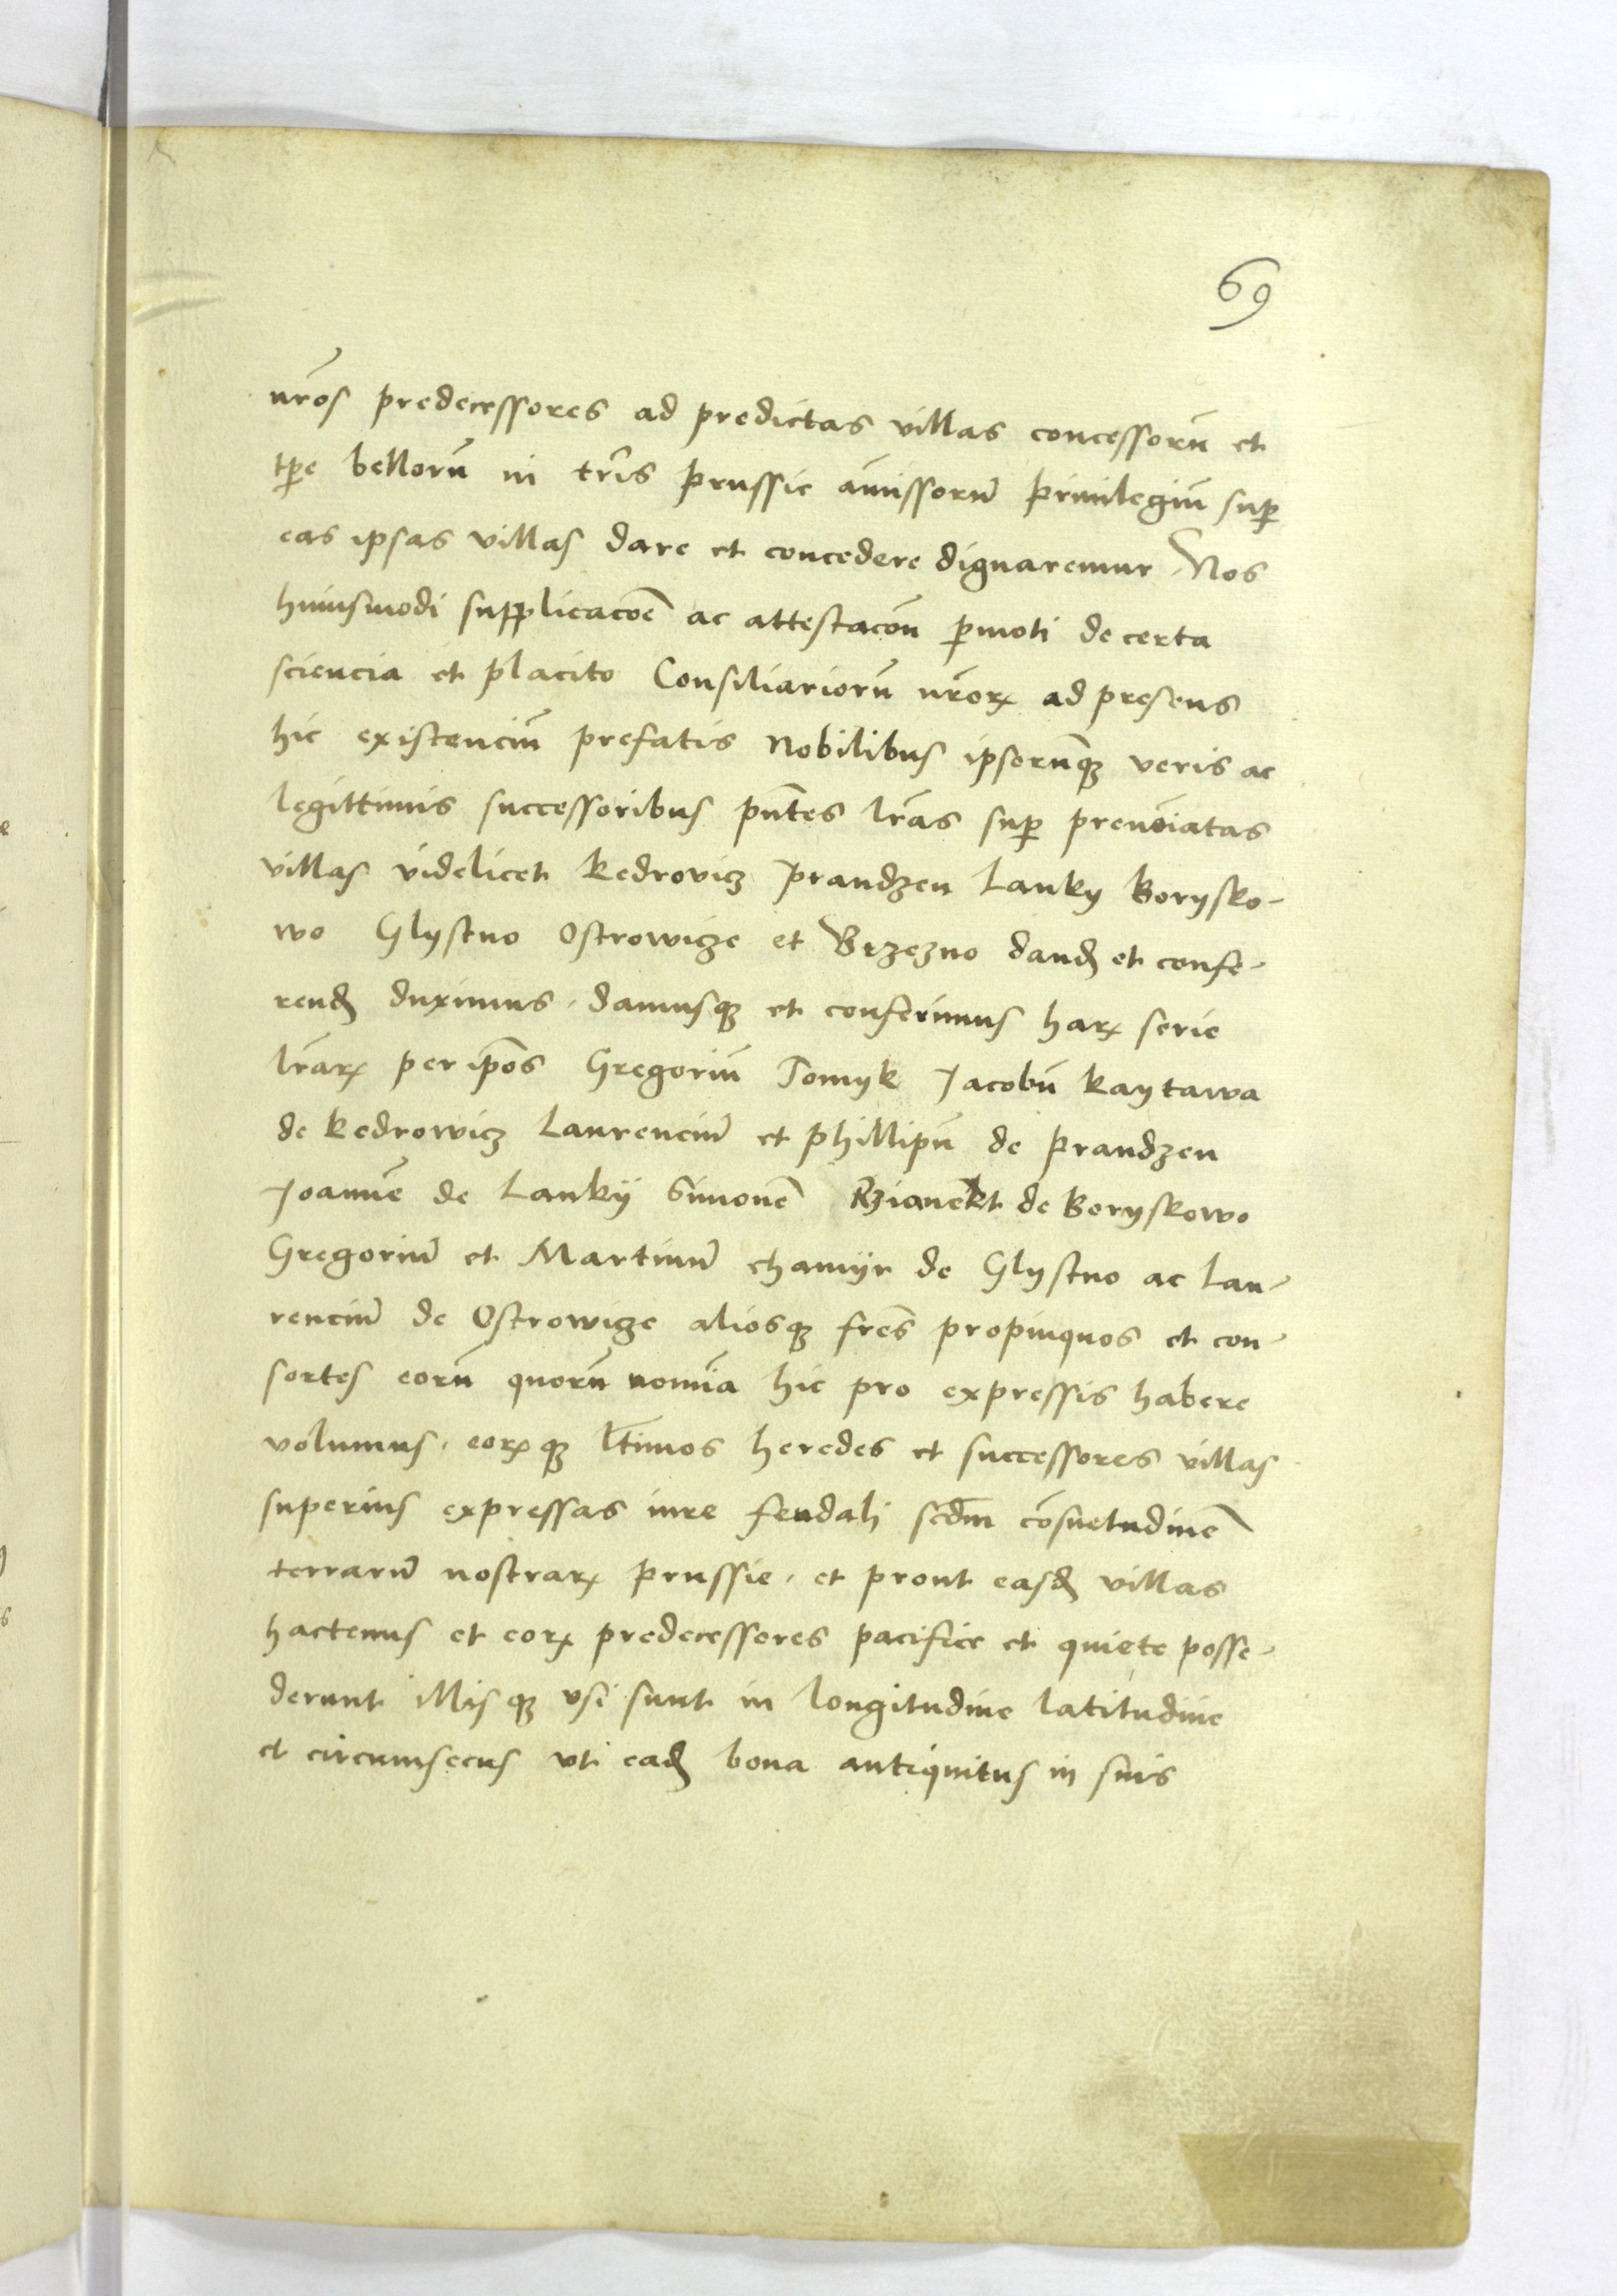 69
nr̃os predecessores ad predictas villas concessorũ et
tꝑe bellorũ in tr̃is prussie amissorũ priuilegiũ suꝑ
eas ipsas villas dare et concedere dignaremur. Nos
huiusmodi supplicacõẽ ac attestacõn ꝑmoti de certa
sciencia et placito Consiliariorũ nr̃oꝝ ad presens
hic existenciũ prefatis Nobilibus ipsorũqꝫ veris ac
legittimis successoribus pñtes lr̃as suꝑ prenoĩatas
villas videlicet kedrovicz prandzen Lanky Borysko-
wo Glystno Ostrowicze et Brzezno dandꝭ et confe-
rendꝭ duximus. damusqꝫ et conferimus haꝝ serie
lr̃aꝝ per ip̃os Gregoriũ Tomyk Jacobũ kaytawa
de kedrowicz Laurenciũ et phillipũ de prandzen
Joannẽ de Lankÿ Simonẽ de Boryskowo
Gregoriũ et Martinũ chamÿr de Glystno ac Lau-
renciũ de Ostrowicze aliosqꝫ fr̃es propinquos et con-
sortes eorũ quorũ nomĩa hic pro expressis habere
volumus. eoꝝqꝫ lt̃imos heredes et successores villas
superius expressas iure feudali scd̃m cõsuetudinẽ
terrarũ nostraꝝ prussie. et prout easdꝭ villas
hactenus et eoꝝ predecessores pacifice et quiete posse-
derunt illisqꝫ vsi sunt in longitudine latitudine
et circumsecus vti eadꝭ bona antiquitus in suis